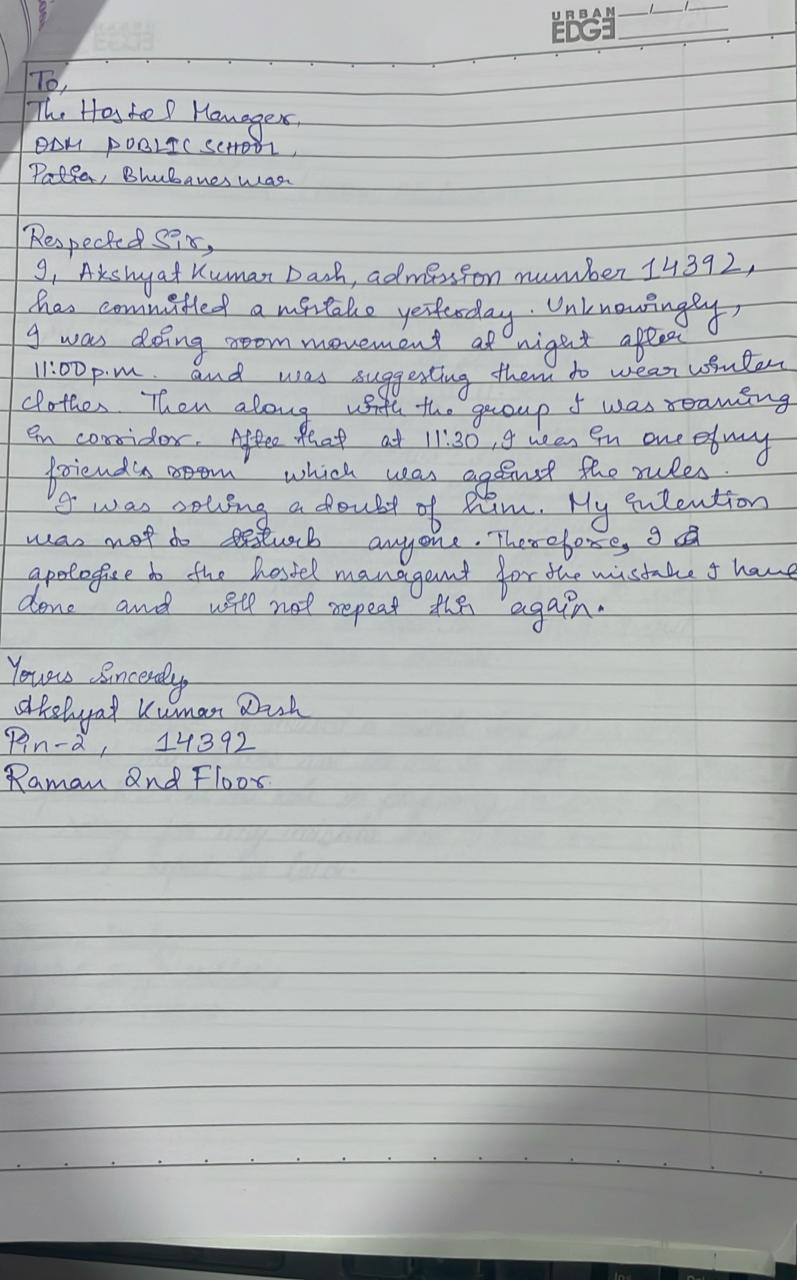 URBAN
EDGE
To,
The Hostel Manager,
ODM PUBLIC SCHOOL,
Patia, Bhubaneswar
Respected Sir,
I, Akshyat Kumar Dash, admission number 14392,
has committed a mistake yesterday. Unknowingly,
I was doing room movement at night after
11:00 p.m. and was suggesting them to wear winter
clothes. Then along with the group I was roaming
in corridor. After that at 11:30, I was in one of my
friend's room which was against the rules.
I was solving a doubt of him. My intention
was not to disturb anyone. Therefore, I
apologise to the hostel managemt for the mistake I have
done and will not repeat this again.
Yours Sincerly,
Akshyat Kumar Dash
Pin-2, 14392
Raman 2nd Floor.